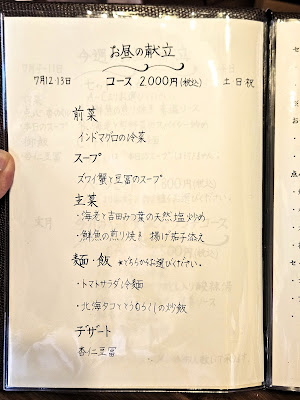 お昼の献立
7月12・13日 コース 2,000円(税込) 土日祝
前菜
インドマグロの冷菜
スープ
ズワイ蟹と豆腐のスープ
主菜
・海老と吉田みつ葉の天然塩炒め
・鮮魚の煎り焼き 揚げ茄子添え
麺・飯 *どちらかお選びください。
・トマトサラダ冷麺
・北海タコととうもろこしの炒飯
デザート
杏仁豆腐